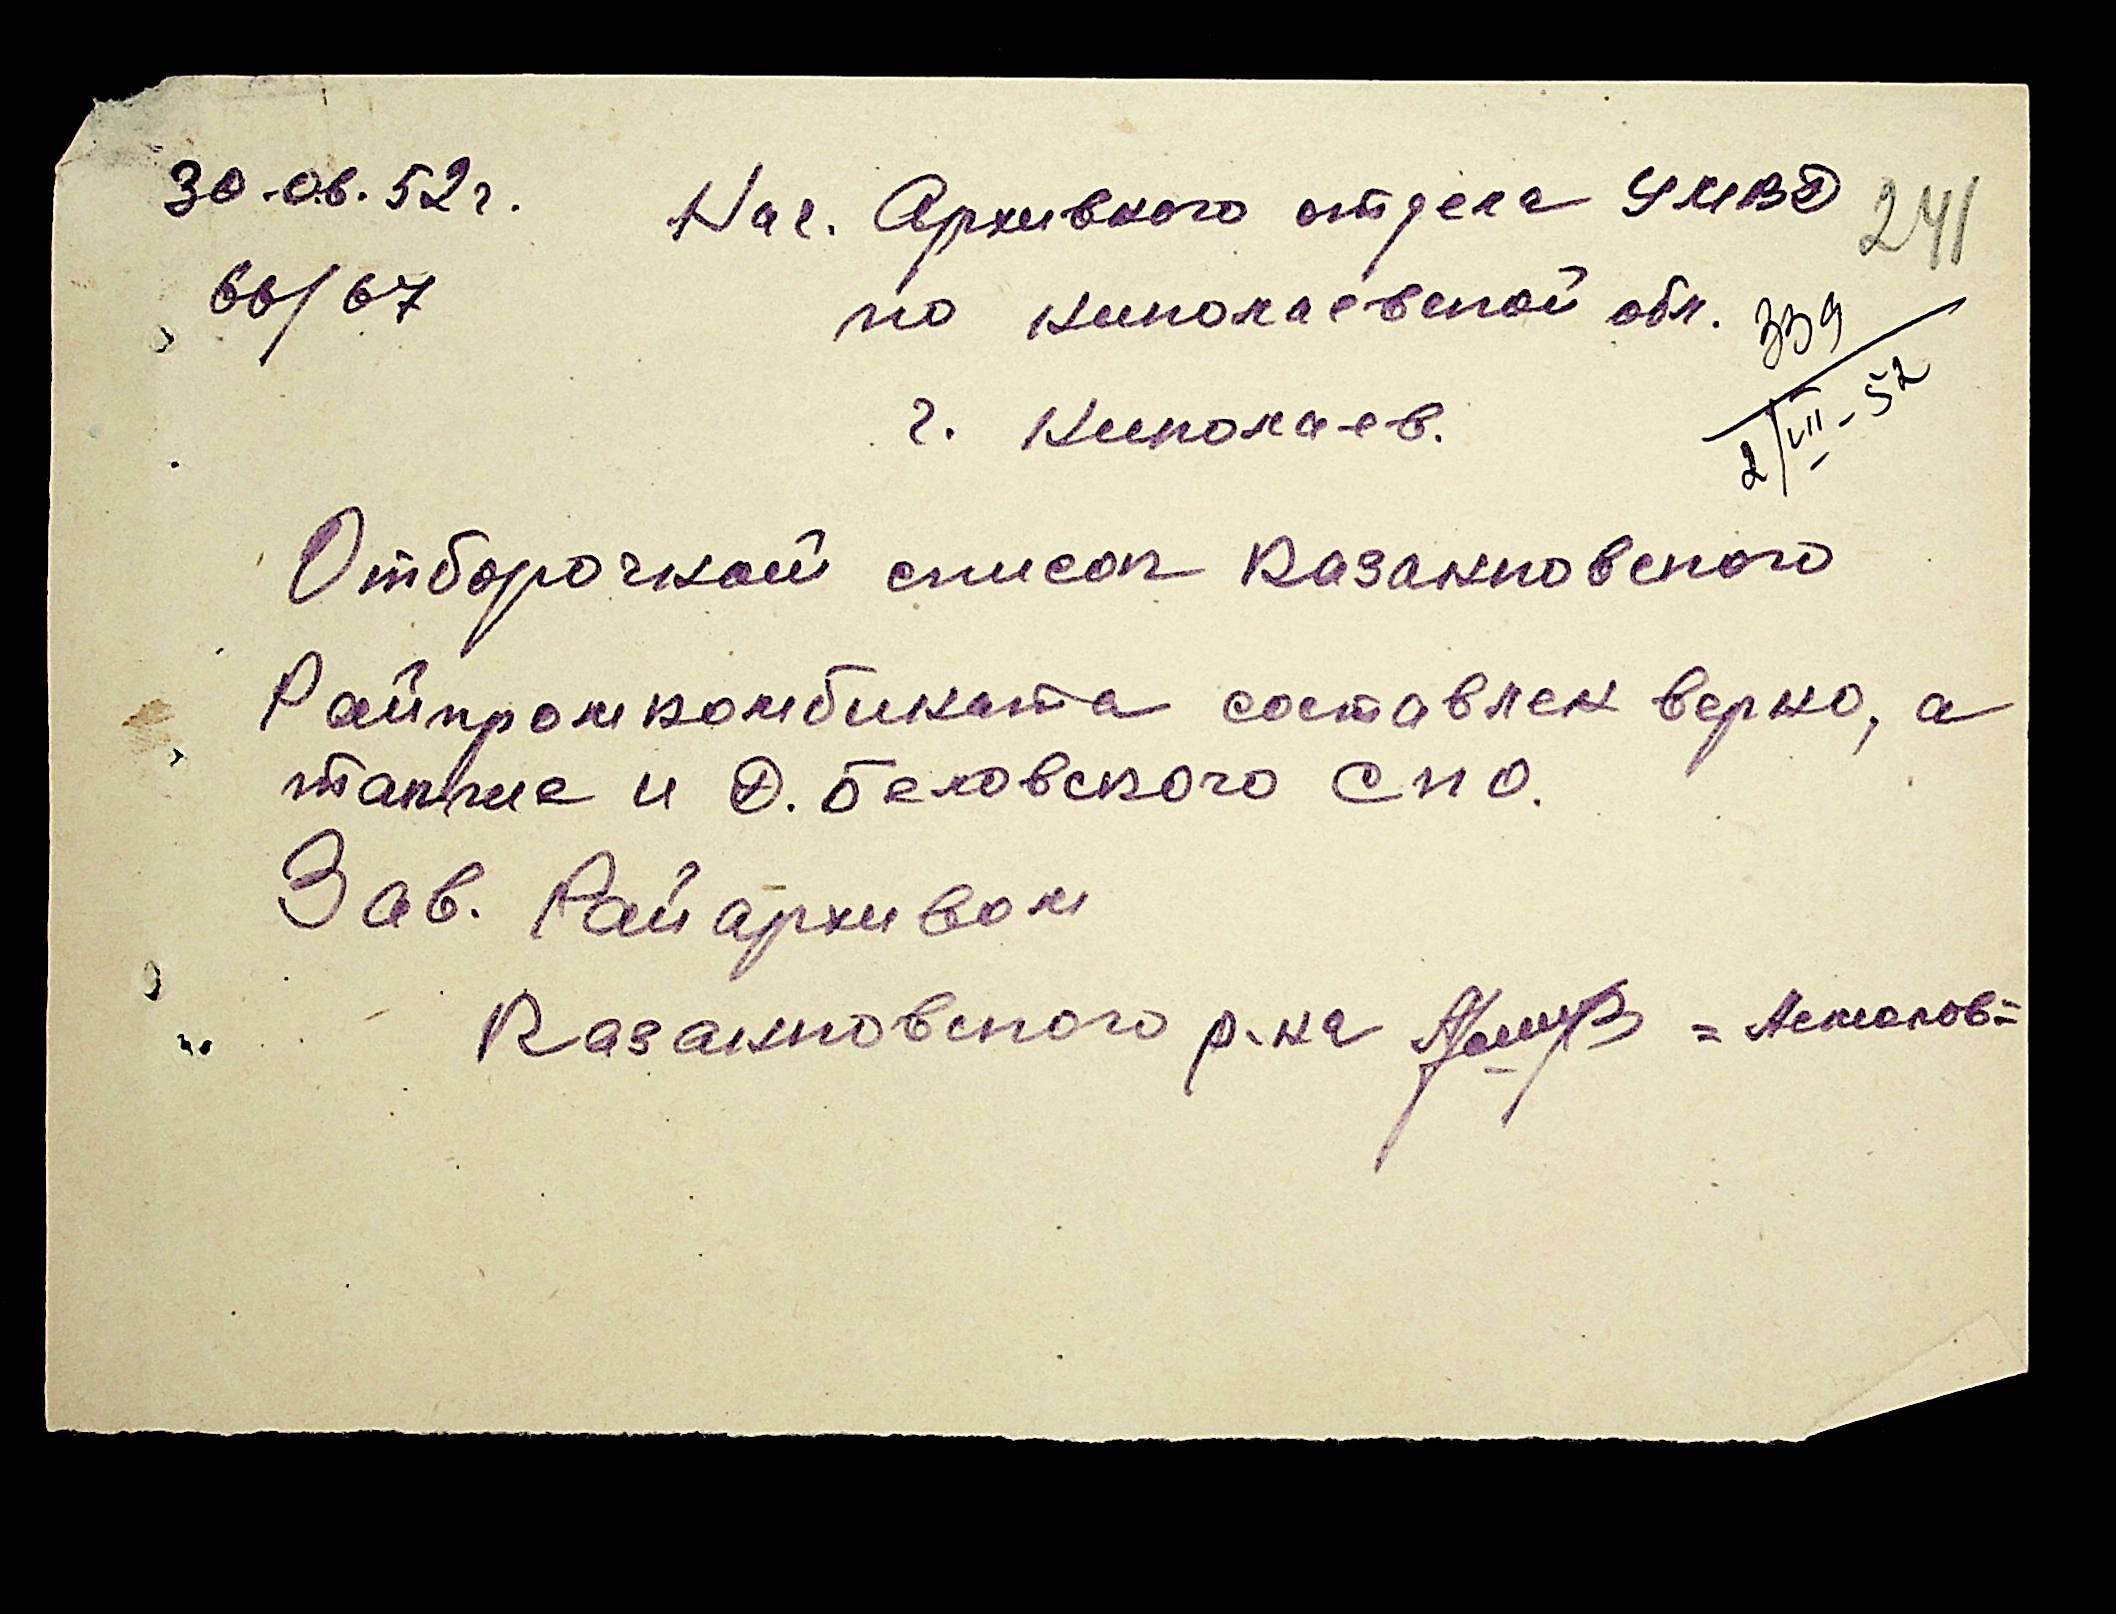 30.06.52г.
Нач. Архивного отдела УМВД
241
66/67
по Николаевской обл.
339
2/VII-52
г. Николаев.
Отборочной список Казанковского
Райпромкомбината составлен верно, а
также и Д. Беловского СПО.
Зав. Райархивом
Казанковского р-на = Астапов =